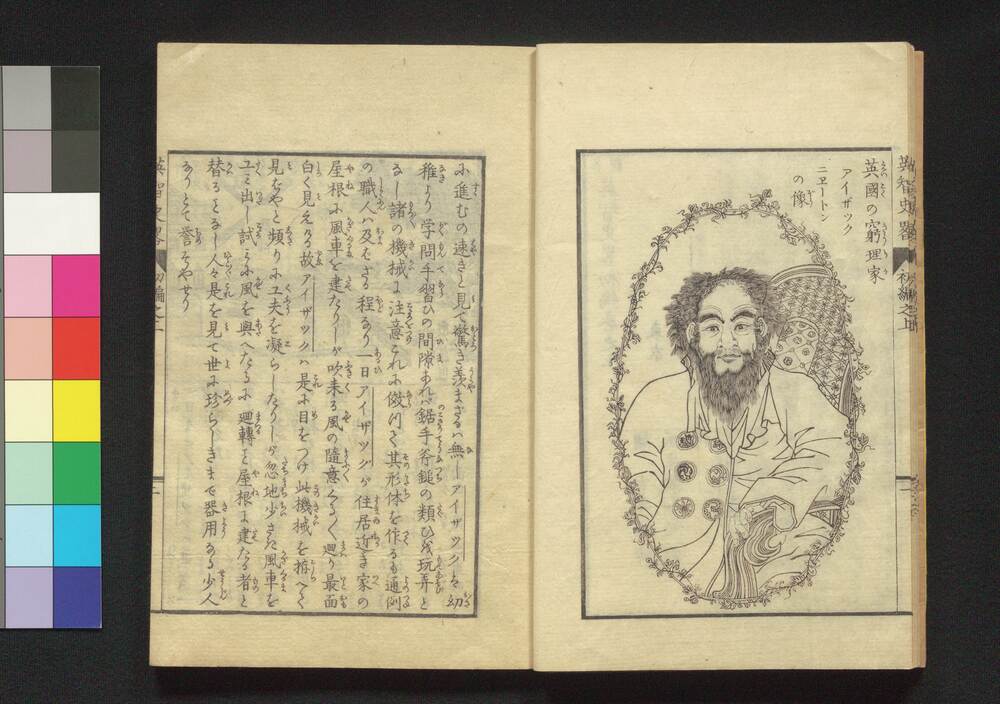 英國の窮理家
アイザック
ニヱートン
の像
に進むの速きと見て驚き羨まざるハ無しアイザックを幼
稚より学問手習ひの間隙あれバ鋸手斧鎚の類ひを玩弄と
るし諸の機械に注意これに倣けて其形体を作るも通例
の職人ハ及ばざる程なり一日アイザックが住居近き家の
屋根に風車を建たりしが吹来る風の隨意くるくる廻り最面
白く見えける故アイザックハ是に目をつけ此機械を拵へて
見ばやと頻りに工夫を凝らしたりしが忽地少さな風車を
工ミ出し試ミに風を與へたるに廻轉と屋根に建たる者と
替るをなし人々是を見て世に珍らしきまで器用なる少人
なりとて誉そやせり